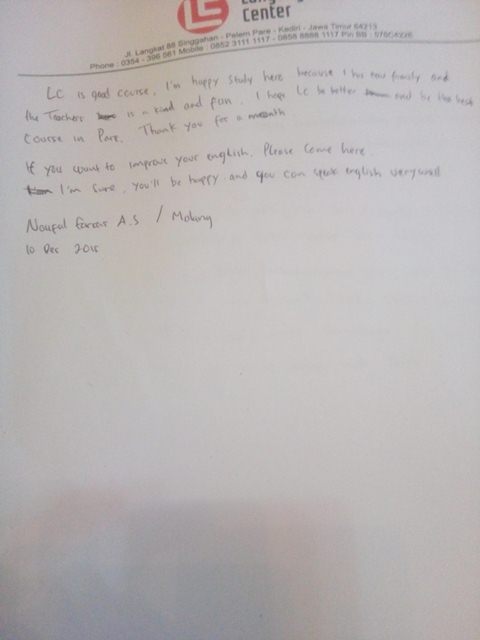 LC
Center
Jl. Langkat 88 Singgahan - Pelem Pare - Kediri - Jawa Timur 64213
Phone : 0354 - 396 561 Mobile : 0852 3111 1117 - 0858 8888 1117 Pin BB :
LC is good course, I'm happy study here because I and
the Teachers is a kind and fun. I hope LC be better and be the best
Course in Pare. Thank you for a month
If you want to improve your english. Please come here.
I'm sure, you'll be happy and you can speak english very well
A.S / Malang
10 Dec 2015